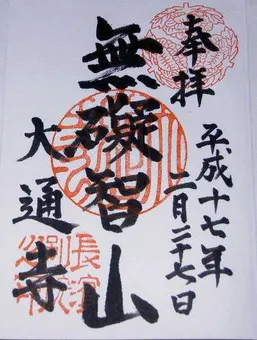 奉拝
平成十七年
二月二十七日
無礙智山
大通寺
長浜
別院